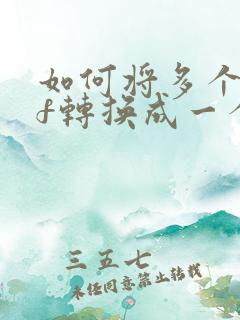 如何将多个
f轉换成一个
三五七
未经同意禁止转载